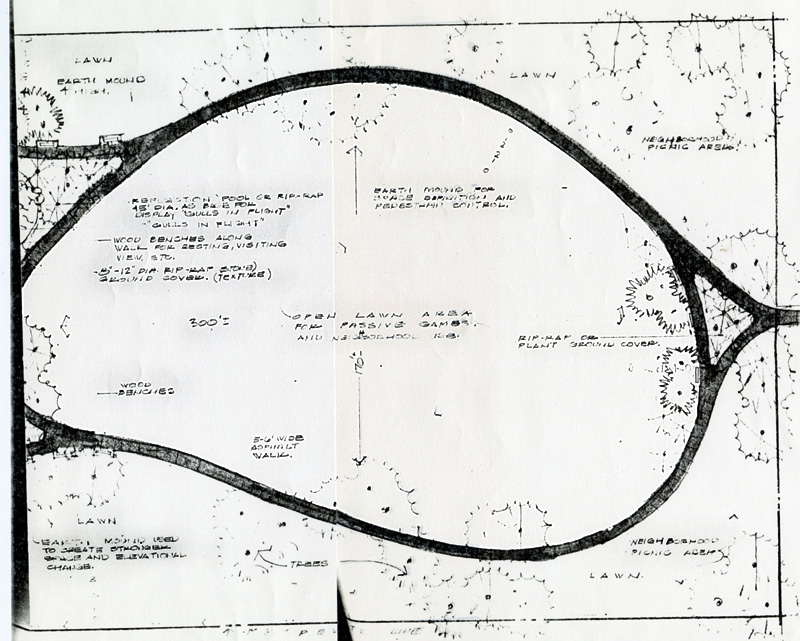 LAWN
EARTH MOUND
LAWN
NEIGHBORHOOD
PICNIC AREA
REFLECTION POOL OR RIP-RAP
45' DIA. AS BASE FOR
DISPLAY "GULLS IN FLIGHT"
"GULLS IN FLIGHT"
EARTH MOUND FOR
SPACE DEFINITION AND
PEDESTRIAN CONTROL.
WOOD BENCHES ALONG
WALK FOR RESTING, VISITING
VIEW, ETC.
8"-12" DIA. RIP-RAP (STONE)
GROUND COVER. (TEXTURE)
300'±
OPEN LAWN AREA
FOR PASSIVE GAMES
AND NEIGBORHOOD
RIP-RAP OR
PLANT GROUND COVER.
170'
WOOD
BENCHES
5-6' WIDE
ASPHALT
WALK.
LAWN
EARTH MOUND USED
TO CREATE STRONGER
SPACE AND ELEVATIONAL
CHANGE.
TREES
NEIGHBORHOOD
PICNIC AREA
LAWN
LINE